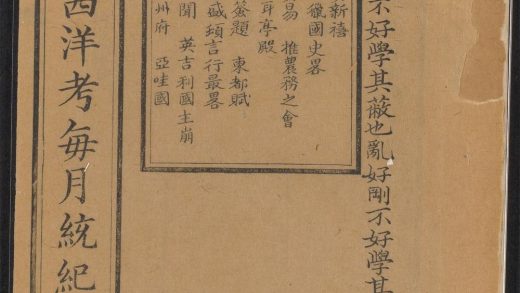 不好學其蔽也亂好剛不好學其
新禧
獵國史畧
易 推農務之會
耳亭殿
簽題 東都賦
盛頓言行最畧
聞 英吉利國主崩
州府 亞哇國
西洋考每月統紀